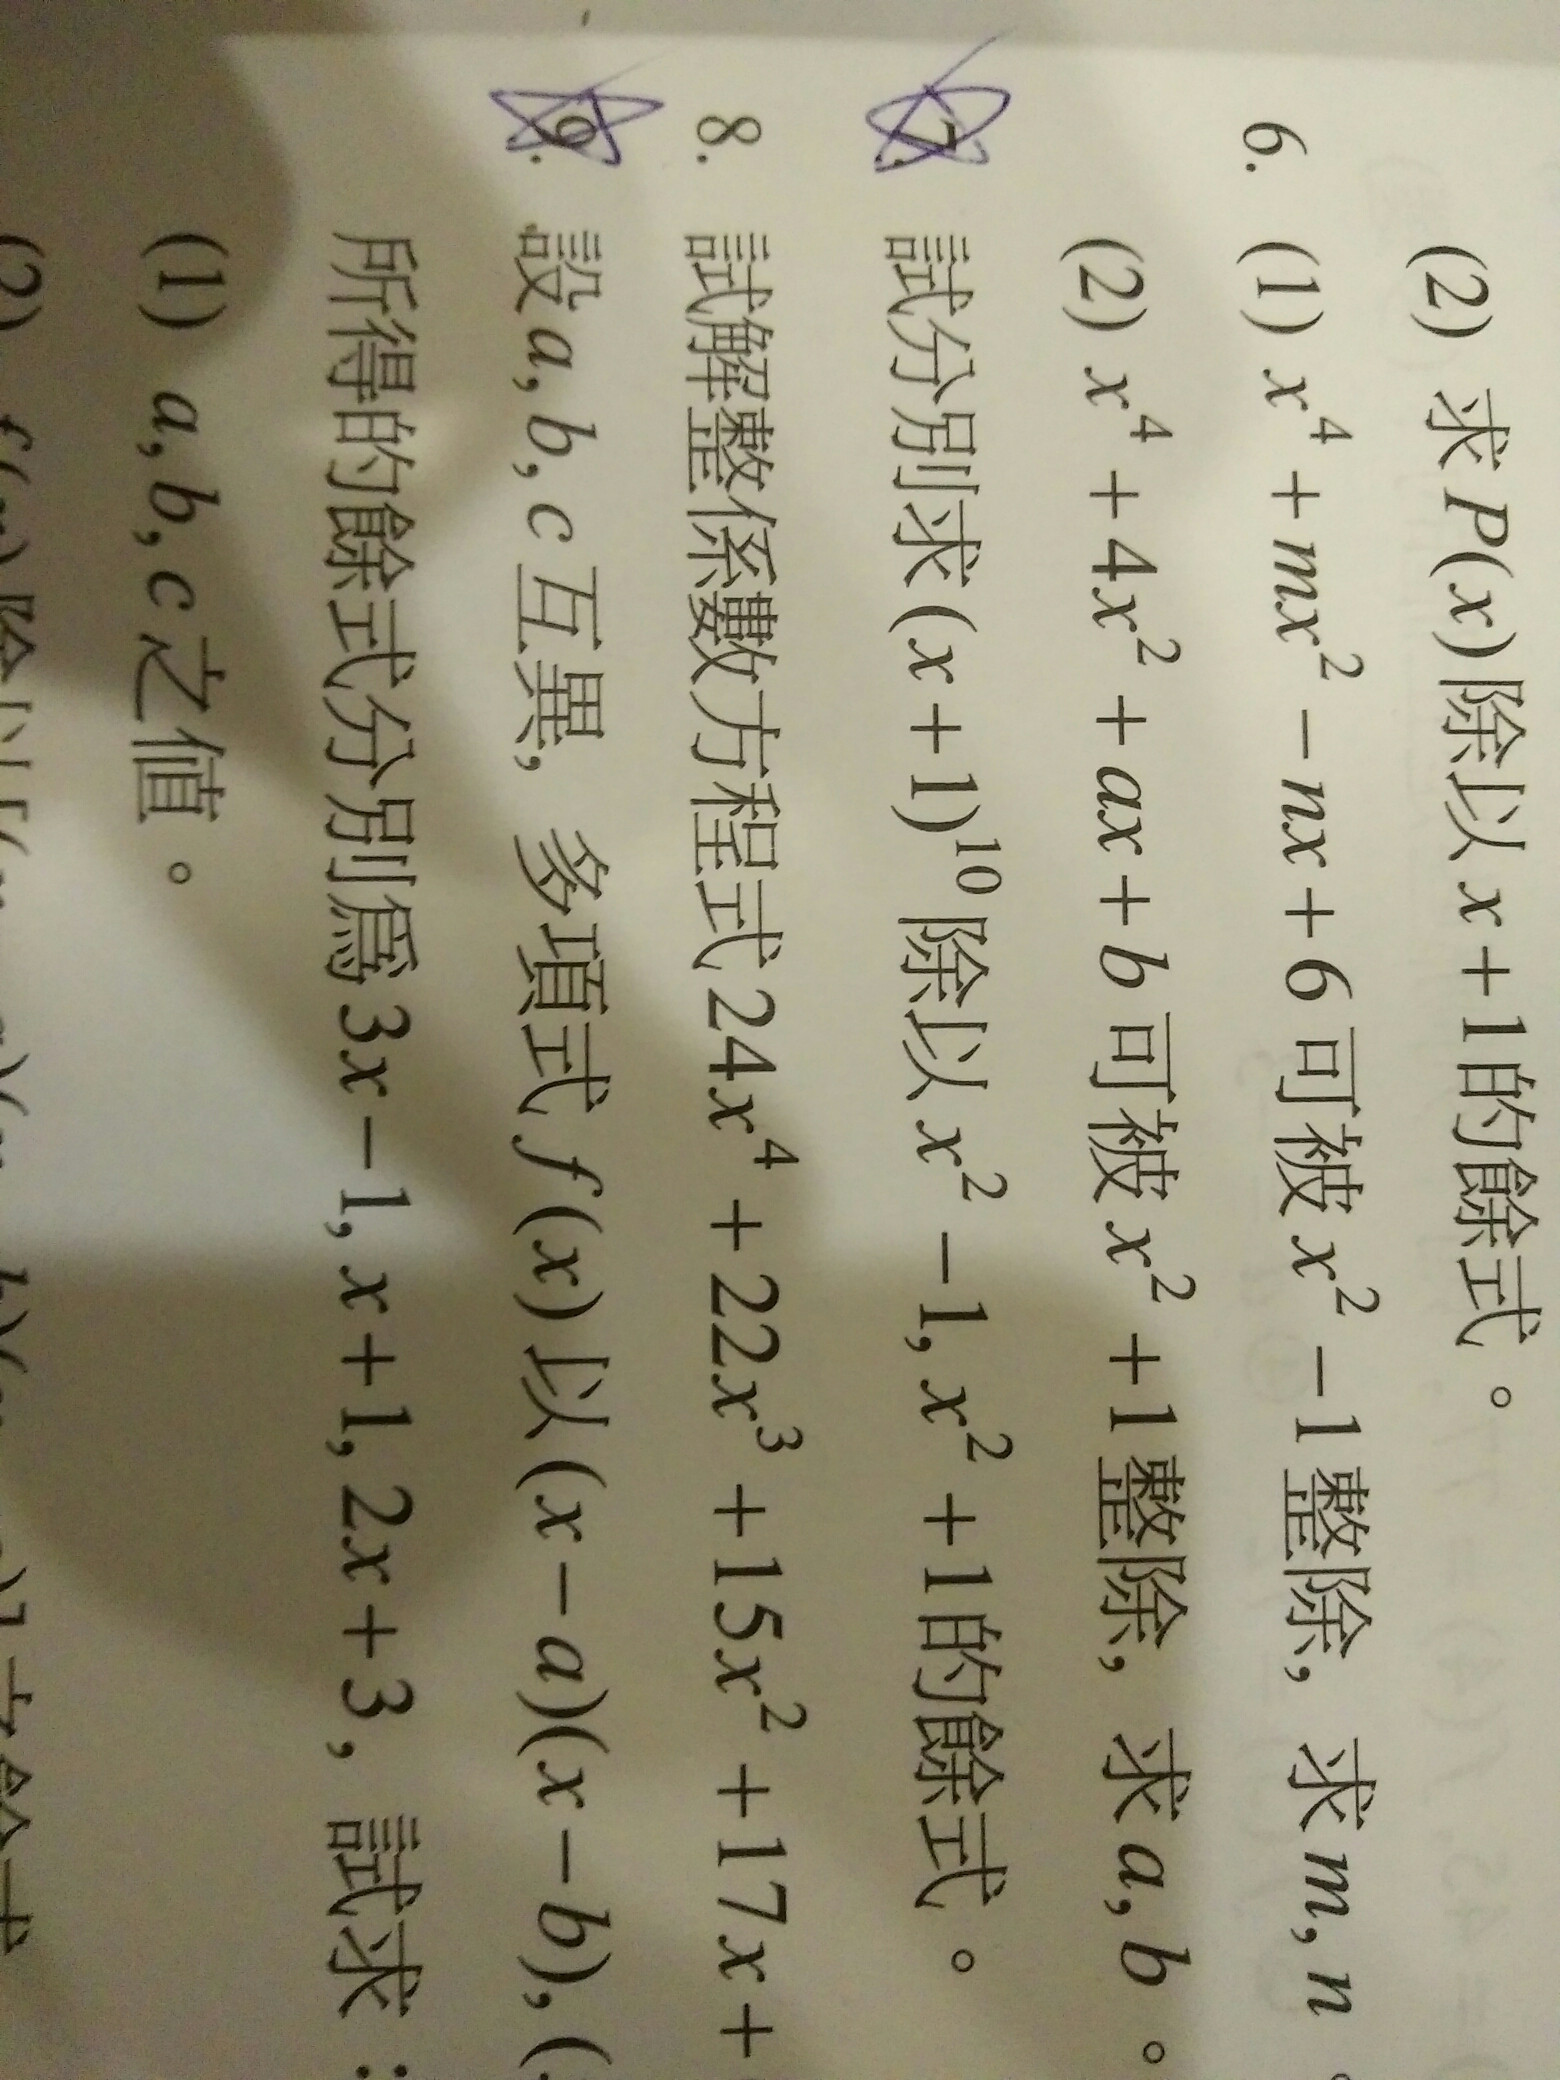 (2) 求 P(x) 除以 x+1 的餘式。
6. (1) x⁴+mx²−nx+6 可被 x²−1 整除, 求 m, n
(2) x⁴+4x²+ax+b 可被 x²+1 整除, 求 a, b。
7. 試分別求 (x+1)¹⁰ 除以 x²−1, x²+1 的餘式。
8. 試解整係數方程式 24x⁴+22x³+15x²+17x+
9. 設 a, b, c 互異, 多項式 f(x) 以 (x−a)(x−b), (
所得的餘式分別爲 3x−1, x+1, 2x+3, 試求:
(1) a, b, c 之值。
(2)